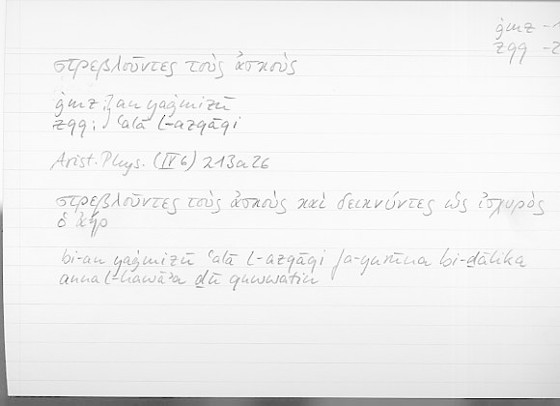 ġmz -1
zqq -2
στρεβλοῦντες τοὺς ἀσκοὺς
ġmz : } an yaġmizū
zqq : } ʿalā l-azqāqi
Arist. Phys. (IV 6) 213a26
στρεβλοῦντες τοὺς ἀσκοὺς καὶ δεικνύντες ὡς ἰσχυρὸς
ὁ ἀήρ
bi-an yaġmizū ʿalā l-azqāqi fa-yurūna bi-ḏālika
anna l-hawāʾa ḏū quwwatin